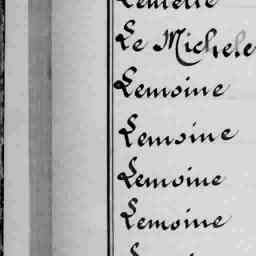 Le Michele
Lemoine
Lemoine
Lemoine
Lemoine